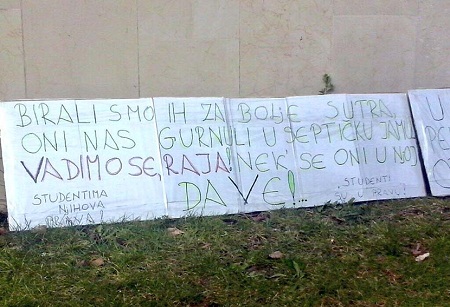 BIRALI SMO IH ZA BOLJE SUTRA,
ONI NAS GURNULI U SEPTIČKU JAMU
VADIMO SE, RAJA! NEK SE ONI U NJOJ
DAVE!...
STUDENTIMA
NJIHOVA
PRAVA!
STUDENTI
SU U PRAVU!
U